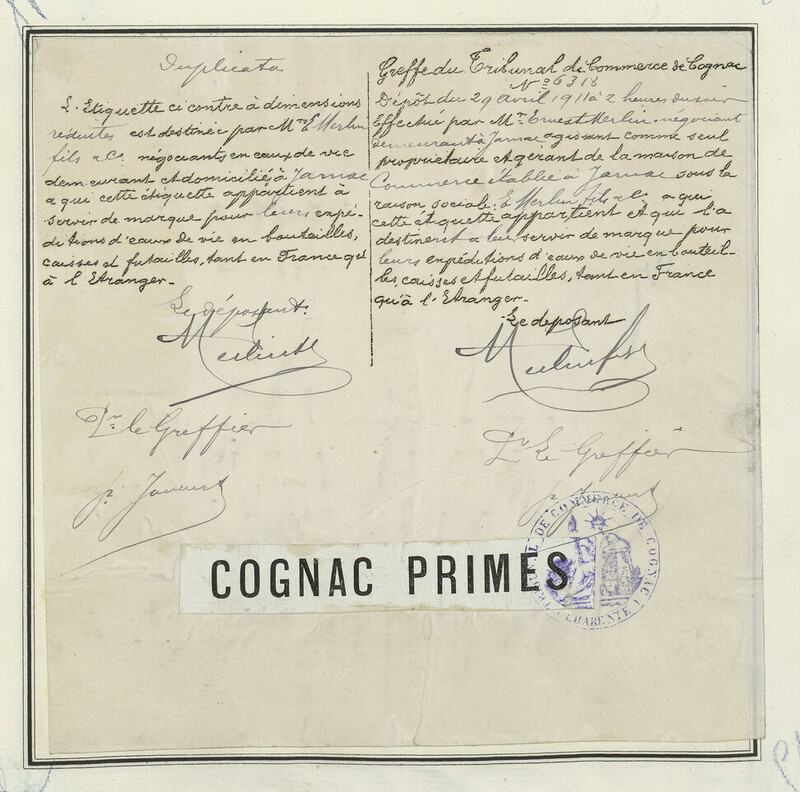 Duplicata
L'Etiquette ci contre à demensions
réduites est destinée par Mrs E. Merlin
fils & Co. négociants en eaux de vie
demeurant et domicilié à Jarnac
a qui cette étiquette appartient à
servir de marque pour leurs expé-
ditions d'eaux de vie en bouteilles,
caisses et futailles, tant en France qu'
à l'Etranger.-
Le déposant.
Merlin fils
Pr. le Greffier
Greffe du Tribunal de Commerce de Cognac
No 6318
Dépôt du 29 avril 1911 à 2 heures du soir
Effectué par Mr. Ernest Merlin, négociant
demeurant à Jarnac agissant comme seul
propriétaire et gérant de la maison de
Commerce établie à Jarnac sous la
raison sociale: E. Merlin fils & Co. a qui
cette étiquette appartient et qui l'a
destinent a leur servir de marque pour
leurs expéditions d'eaux de vie en bouteil-
les, caisses et futailles, tant en France
qu'à l'Etranger.-
Le deposant
Merlin fils
Pr. Le Greffier
COGNAC PRIMES
TRIBUNAL DE COMMERCE DE COGNAC
(CHARENTE)